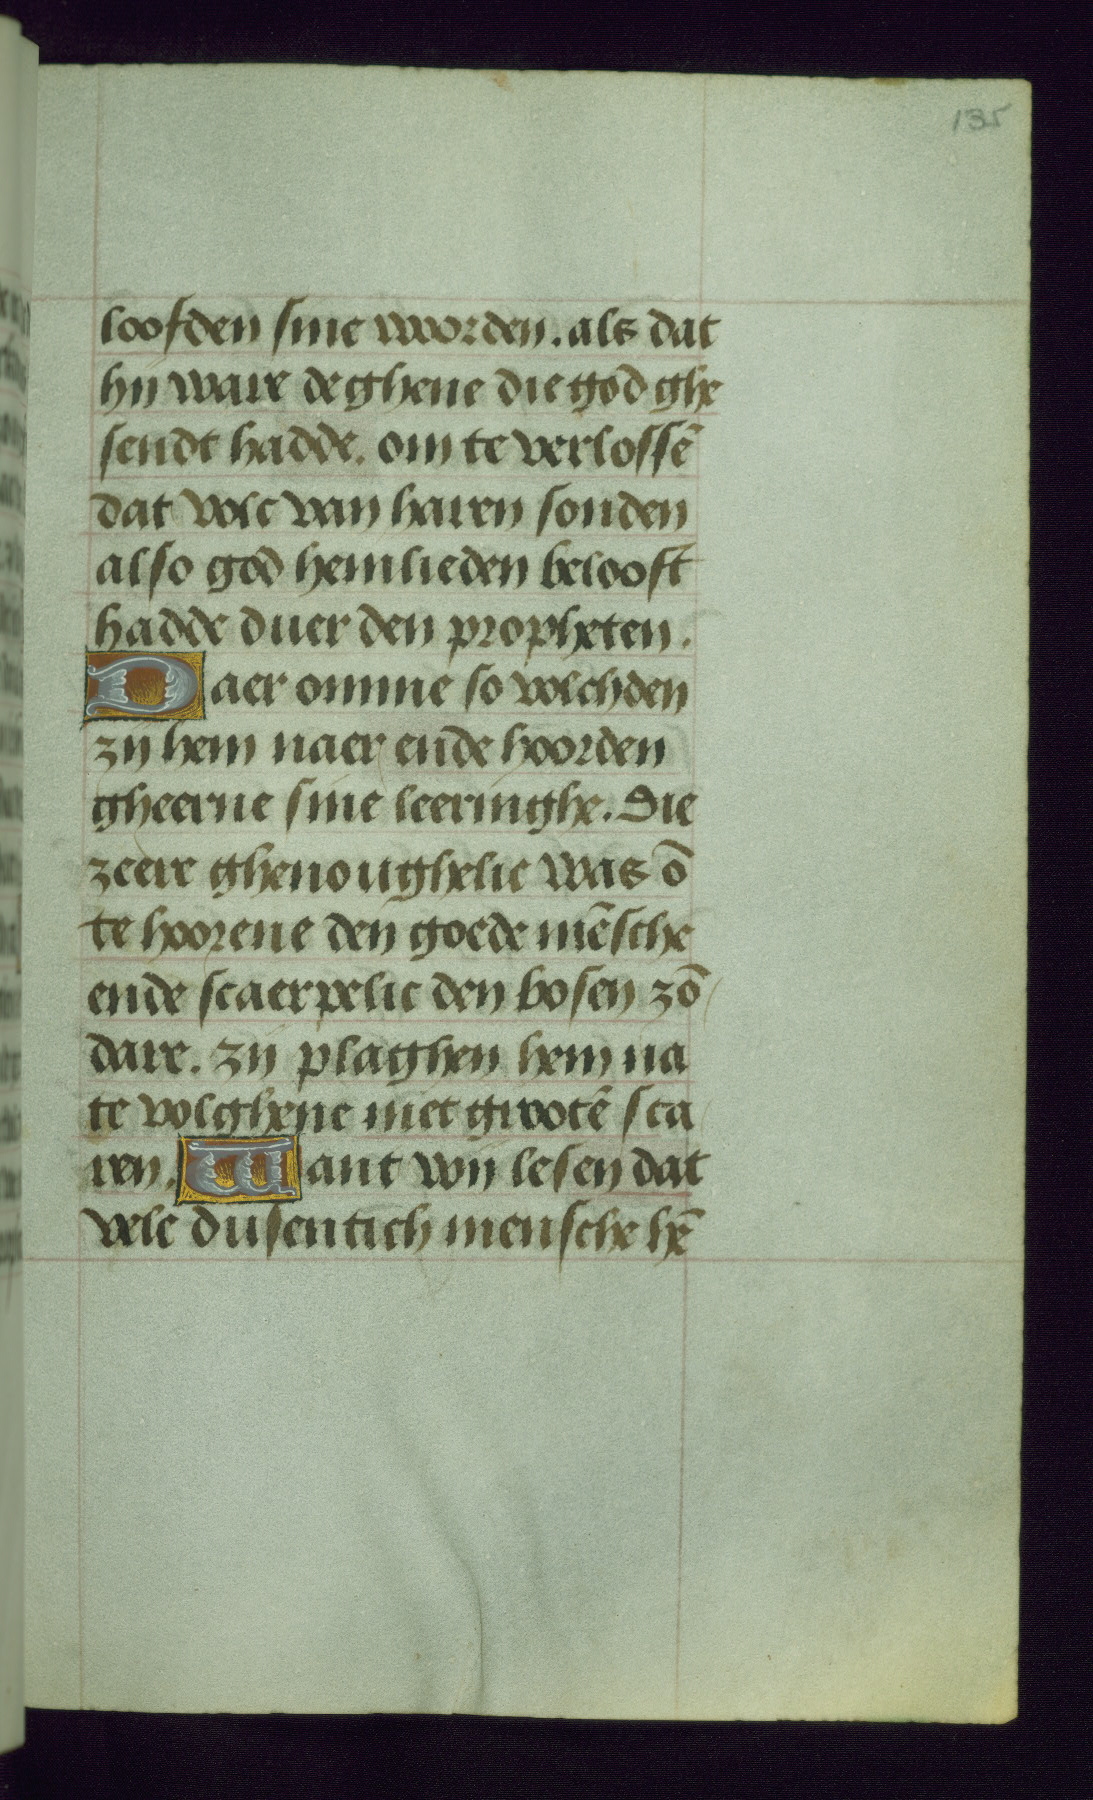 135
loofden sine woorden. als dat
hij ware de ghene die god ghe
sendt hadde. om te verlossē
dat volc van haren sonden
also god hemlieden belooft
hadde duer den propheten.
Daer omme so volchden
zij hem naer ende hoorden
gheerne sine leeringhe. Die
zeere ghenoughelic was ō
te hoorene den goede mēsche
ende scaerpelic den bosen zō
dare. zij plaghen hem na
te volghene met grootē sca
ren. Want wij lesen dat
vele dusentich mensche hē